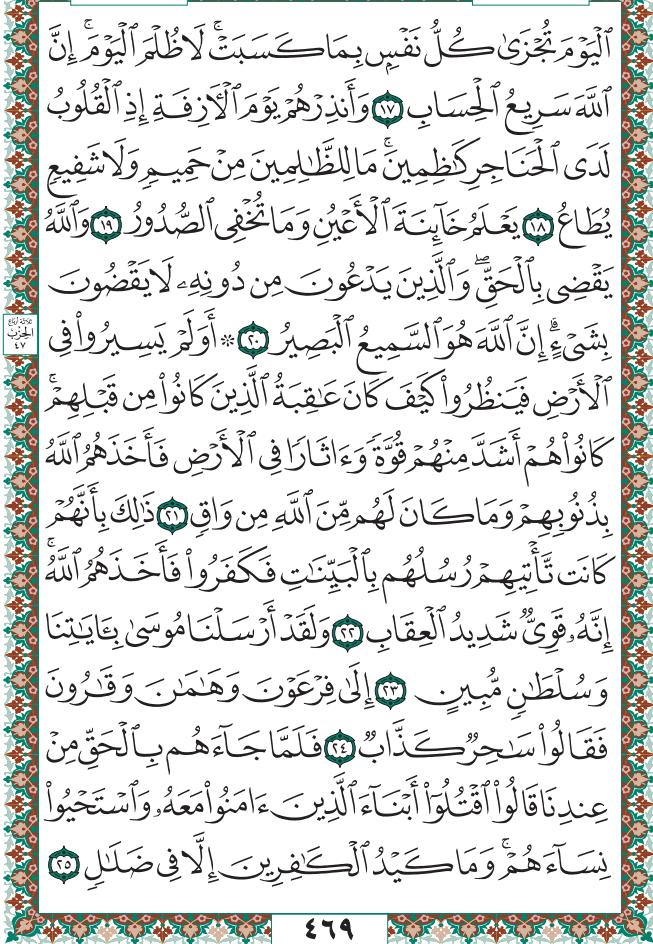 ٱلۡيَوۡمَ تُجۡزَىٰ كُلُّ نَفۡسِۭ بِمَا كَسَبَتۡۚ لَا ظُلۡمَ ٱلۡيَوۡمَۚ إِنَّ
ٱللَّهَ سَرِيعُ ٱلۡحِسَابِ ١٧ وَأَنذِرۡهُمۡ يَوۡمَ ٱلۡأٓزِفَةِ إِذِ ٱلۡقُلُوبُ
لَدَى ٱلۡحَنَاجِرِ كَٰظِمِينَۚ مَا لِلظَّٰلِمِينَ مِنۡ حَمِيمٖ وَلَا شَفِيعٖ
يُطَاعُ ١٨ يَعۡلَمُ خَآئِنَةَ ٱلۡأَعۡيُنِ وَمَا تُخۡفِي ٱلصُّدُورُ ١٩ وَٱللَّهُ
يَقۡضِي بِٱلۡحَقِّۖ وَٱلَّذِينَ يَدۡعُونَ مِن دُونِهِۦ لَا يَقۡضُونَ
بِشَيۡءٍۗ إِنَّ ٱللَّهَ هُوَ ٱلسَّمِيعُ ٱلۡبَصِيرُ ٢٠ ۞ أَوَلَمۡ يَسِيرُواْ فِي
ٱلۡأَرۡضِ فَيَنظُرُواْ كَيۡفَ كَانَ عَٰقِبَةُ ٱلَّذِينَ كَانُواْ مِن قَبۡلِهِمۡۚ
ثلاثة أرباع
الحزب
٤٧
كَانُواْ هُمۡ أَشَدَّ مِنۡهُمۡ قُوَّةٗ وَءَاثَارٗا فِي ٱلۡأَرۡضِ فَأَخَذَهُمُ ٱللَّهُ
بِذُنُوبِهِمۡ وَمَا كَانَ لَهُم مِّنَ ٱللَّهِ مِن وَاقٖ ٢١ ذَٰلِكَ بِأَنَّهُمۡ
كَانَت تَّأۡتِيهِمۡ رُسُلُهُم بِٱلۡبَيِّنَٰتِ فَكَفَرُواْ فَأَخَذَهُمُ ٱللَّهُۚ
إِنَّهُۥ قَوِيّٞ شَدِيدُ ٱلۡعِقَابِ ٢٢ وَلَقَدۡ أَرۡسَلۡنَا مُوسَىٰ بِـَٔايَٰتِنَا
وَسُلۡطَٰنٖ مُّبِينٍ ٢٣ إِلَىٰ فِرۡعَوۡنَ وَهَٰمَٰنَ وَقَٰرُونَ
فَقَالُواْ سَٰحِرٞ كَذَّابٞ ٢٤ فَلَمَّا جَآءَهُم بِٱلۡحَقِّ مِنۡ
عِندِنَا قَالُواْ ٱقۡتُلُوٓاْ أَبۡنَآءَ ٱلَّذِينَ ءَامَنُواْ مَعَهُۥ وَٱسۡتَحۡيُواْ
نِسَآءَهُمۡۚ وَمَا كَيۡدُ ٱلۡكَٰفِرِينَ إِلَّا فِي ضَلَٰلٖ ٢٥
٤٦٩